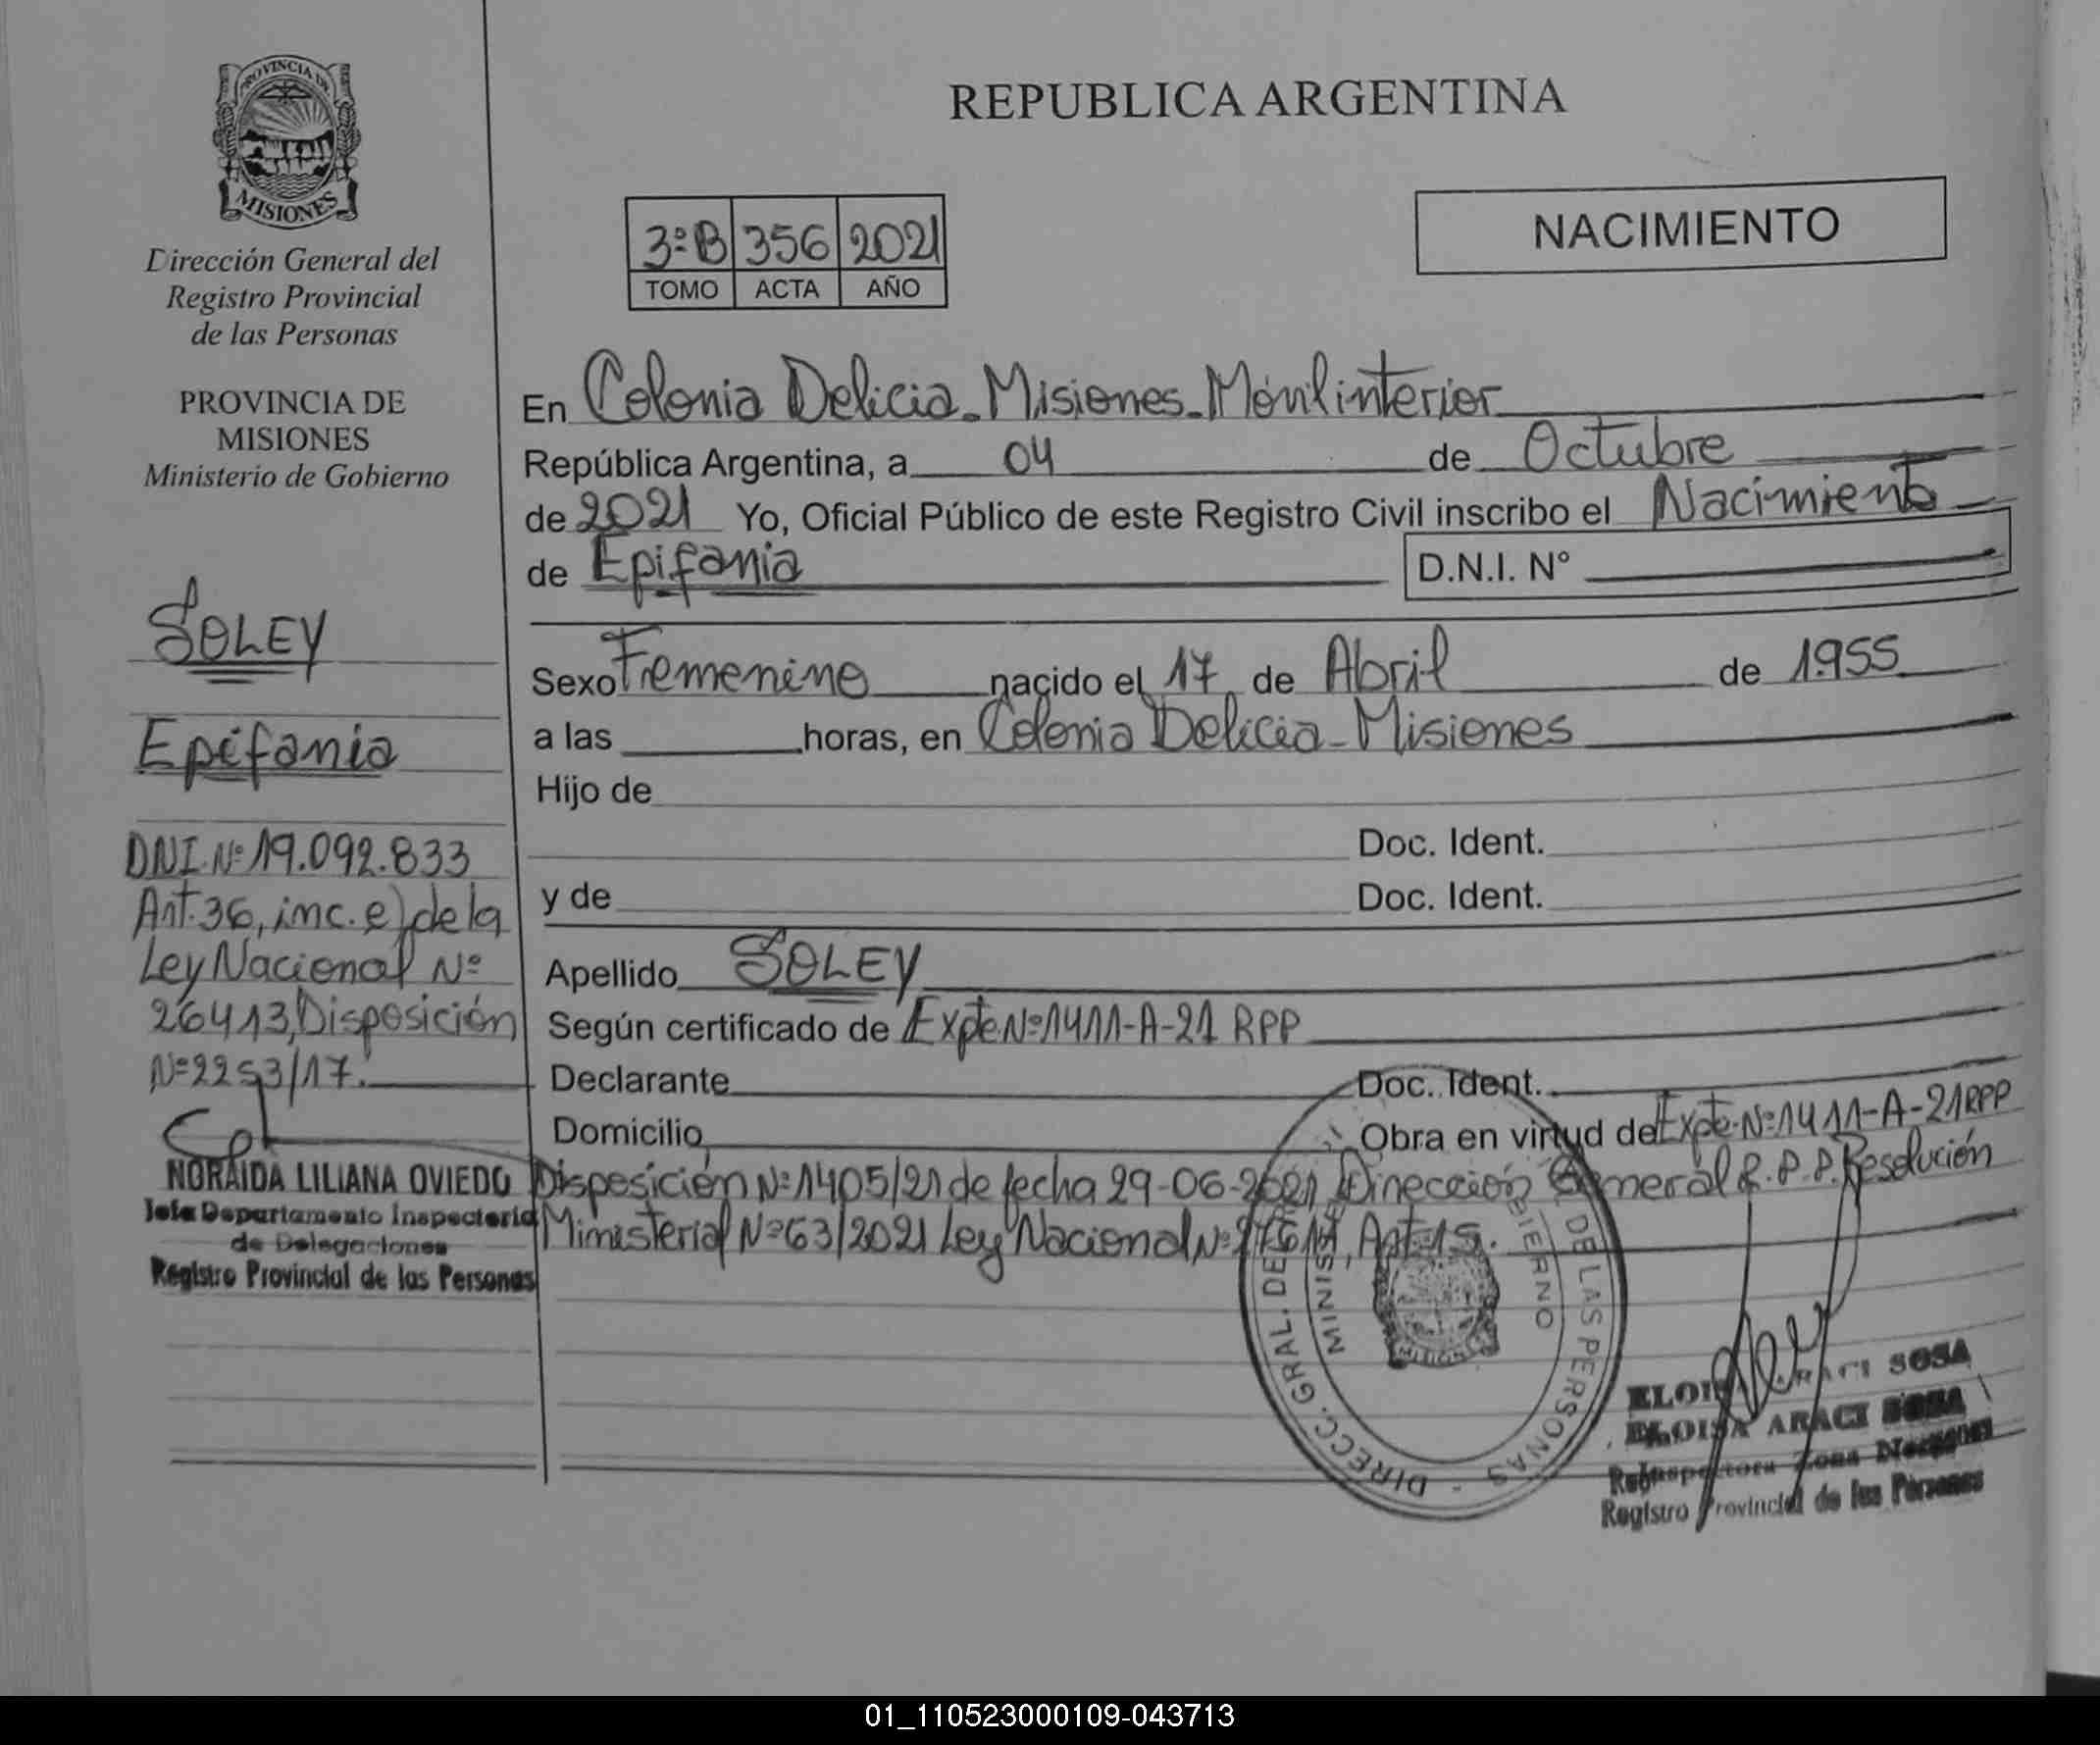 PROVINCIA DE
MISIONES
Dirección General del
Registro Provincial
de las Personas
PROVINCIA DE
MISIONES
Ministerio de Gobierno
SOLEY
Epifania
DNI.Nº19.092.833
Art.36, inc. e) de la
Ley Nacional Nº
26413, Disposición
Nº2253/17.
NORAIDA LILIANA OVIEDO
Jefa Departamento Inspectoria
de Delegaciones
Registro Provincial de las Personas
REPUBLICA ARGENTINA
NACIMIENTO
3ºB 356 2021
TOMO ACTA AÑO
En Colonia Delicia_Misiones_Móvil interior
República Argentina, a 04 de Octubre
de 2021 Yo, Oficial Público de este Registro Civil inscribo el Nacimiento
de Epifania D.N.I. Nº
Sexo Femenino nacido el 17 de Abril de 1.955
a las horas, en Colonia Delicia_Misiones
Hijo de
Doc. Ident.
y de Doc. Ident.
Apellido SOLEY
Según certificado de Expte.Nº1411-A-21 RPP
Declarante Doc. Ident.
Domicilio Obra en virtud de Expte.Nº1411-A-21RPP
Disposición Nº1405/21 de fecha 29-06-2021, Dirección General R.P.P. Resolución
Ministerial Nº63/2021 Ley Nacional Nº Art.
DIRECC. GRAL. DE DE LAS PERSONAS -
MINIS BIERNO
ARACI SOSA
ELOISA ARACI SOSA
Zona
Registro Provincial de las Personas
01_110523000109-043713